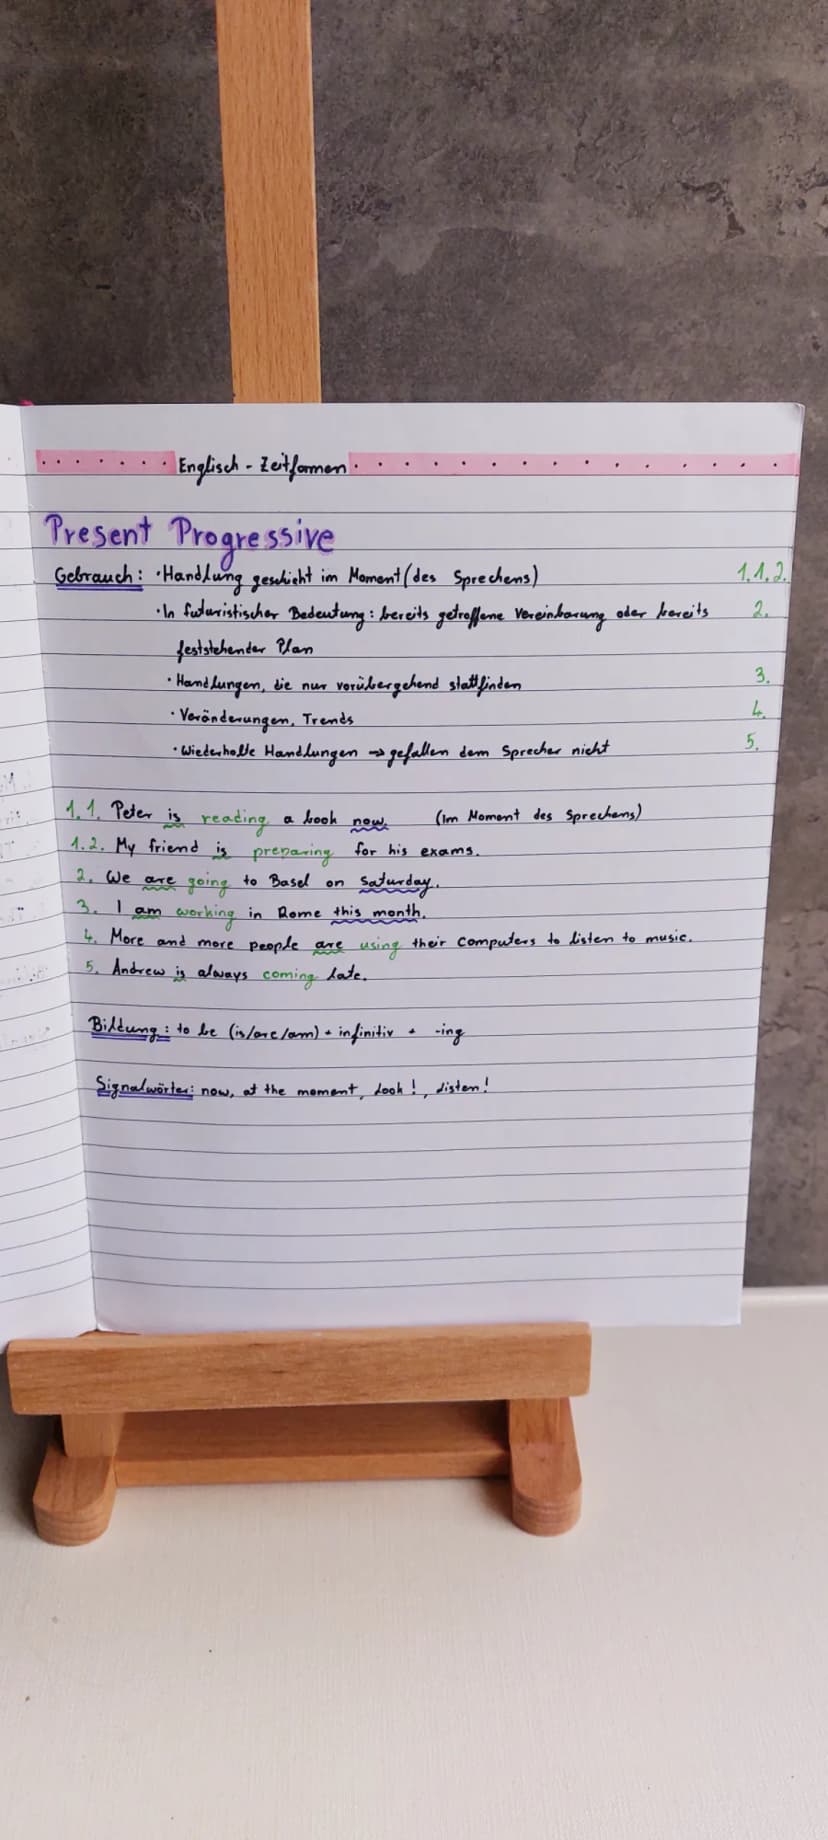 Englisch - Zeitformen
Present Progressive
Gebrauch: · Handlung geschieht im Moment (des Sprechens) 1.1.2.
· In futuristischer Bedeutung: bereits getroffene Vereinbarung oder bereits 2.
feststehender Plan
· Handlungen, die nur vorübergehend stattfinden 3.
· Veränderungen, Trends 4.
· Wiederholte Handlungen → gefallen dem Sprecher nicht 5.
1.1. Peter is reading a book now. (Im Moment des Sprechens)
1.2. My friend is preparing for his exams.
2. We are going to Basel on Saturday.
3. I am working in Rome this month.
4. More and more people are using their computers to listen to music.
5. Andrew is always coming late.
Bildung: to be (is/are/am) + infinitiv + -ing
Signalwörter: now, at the moment, Look!, Listen!